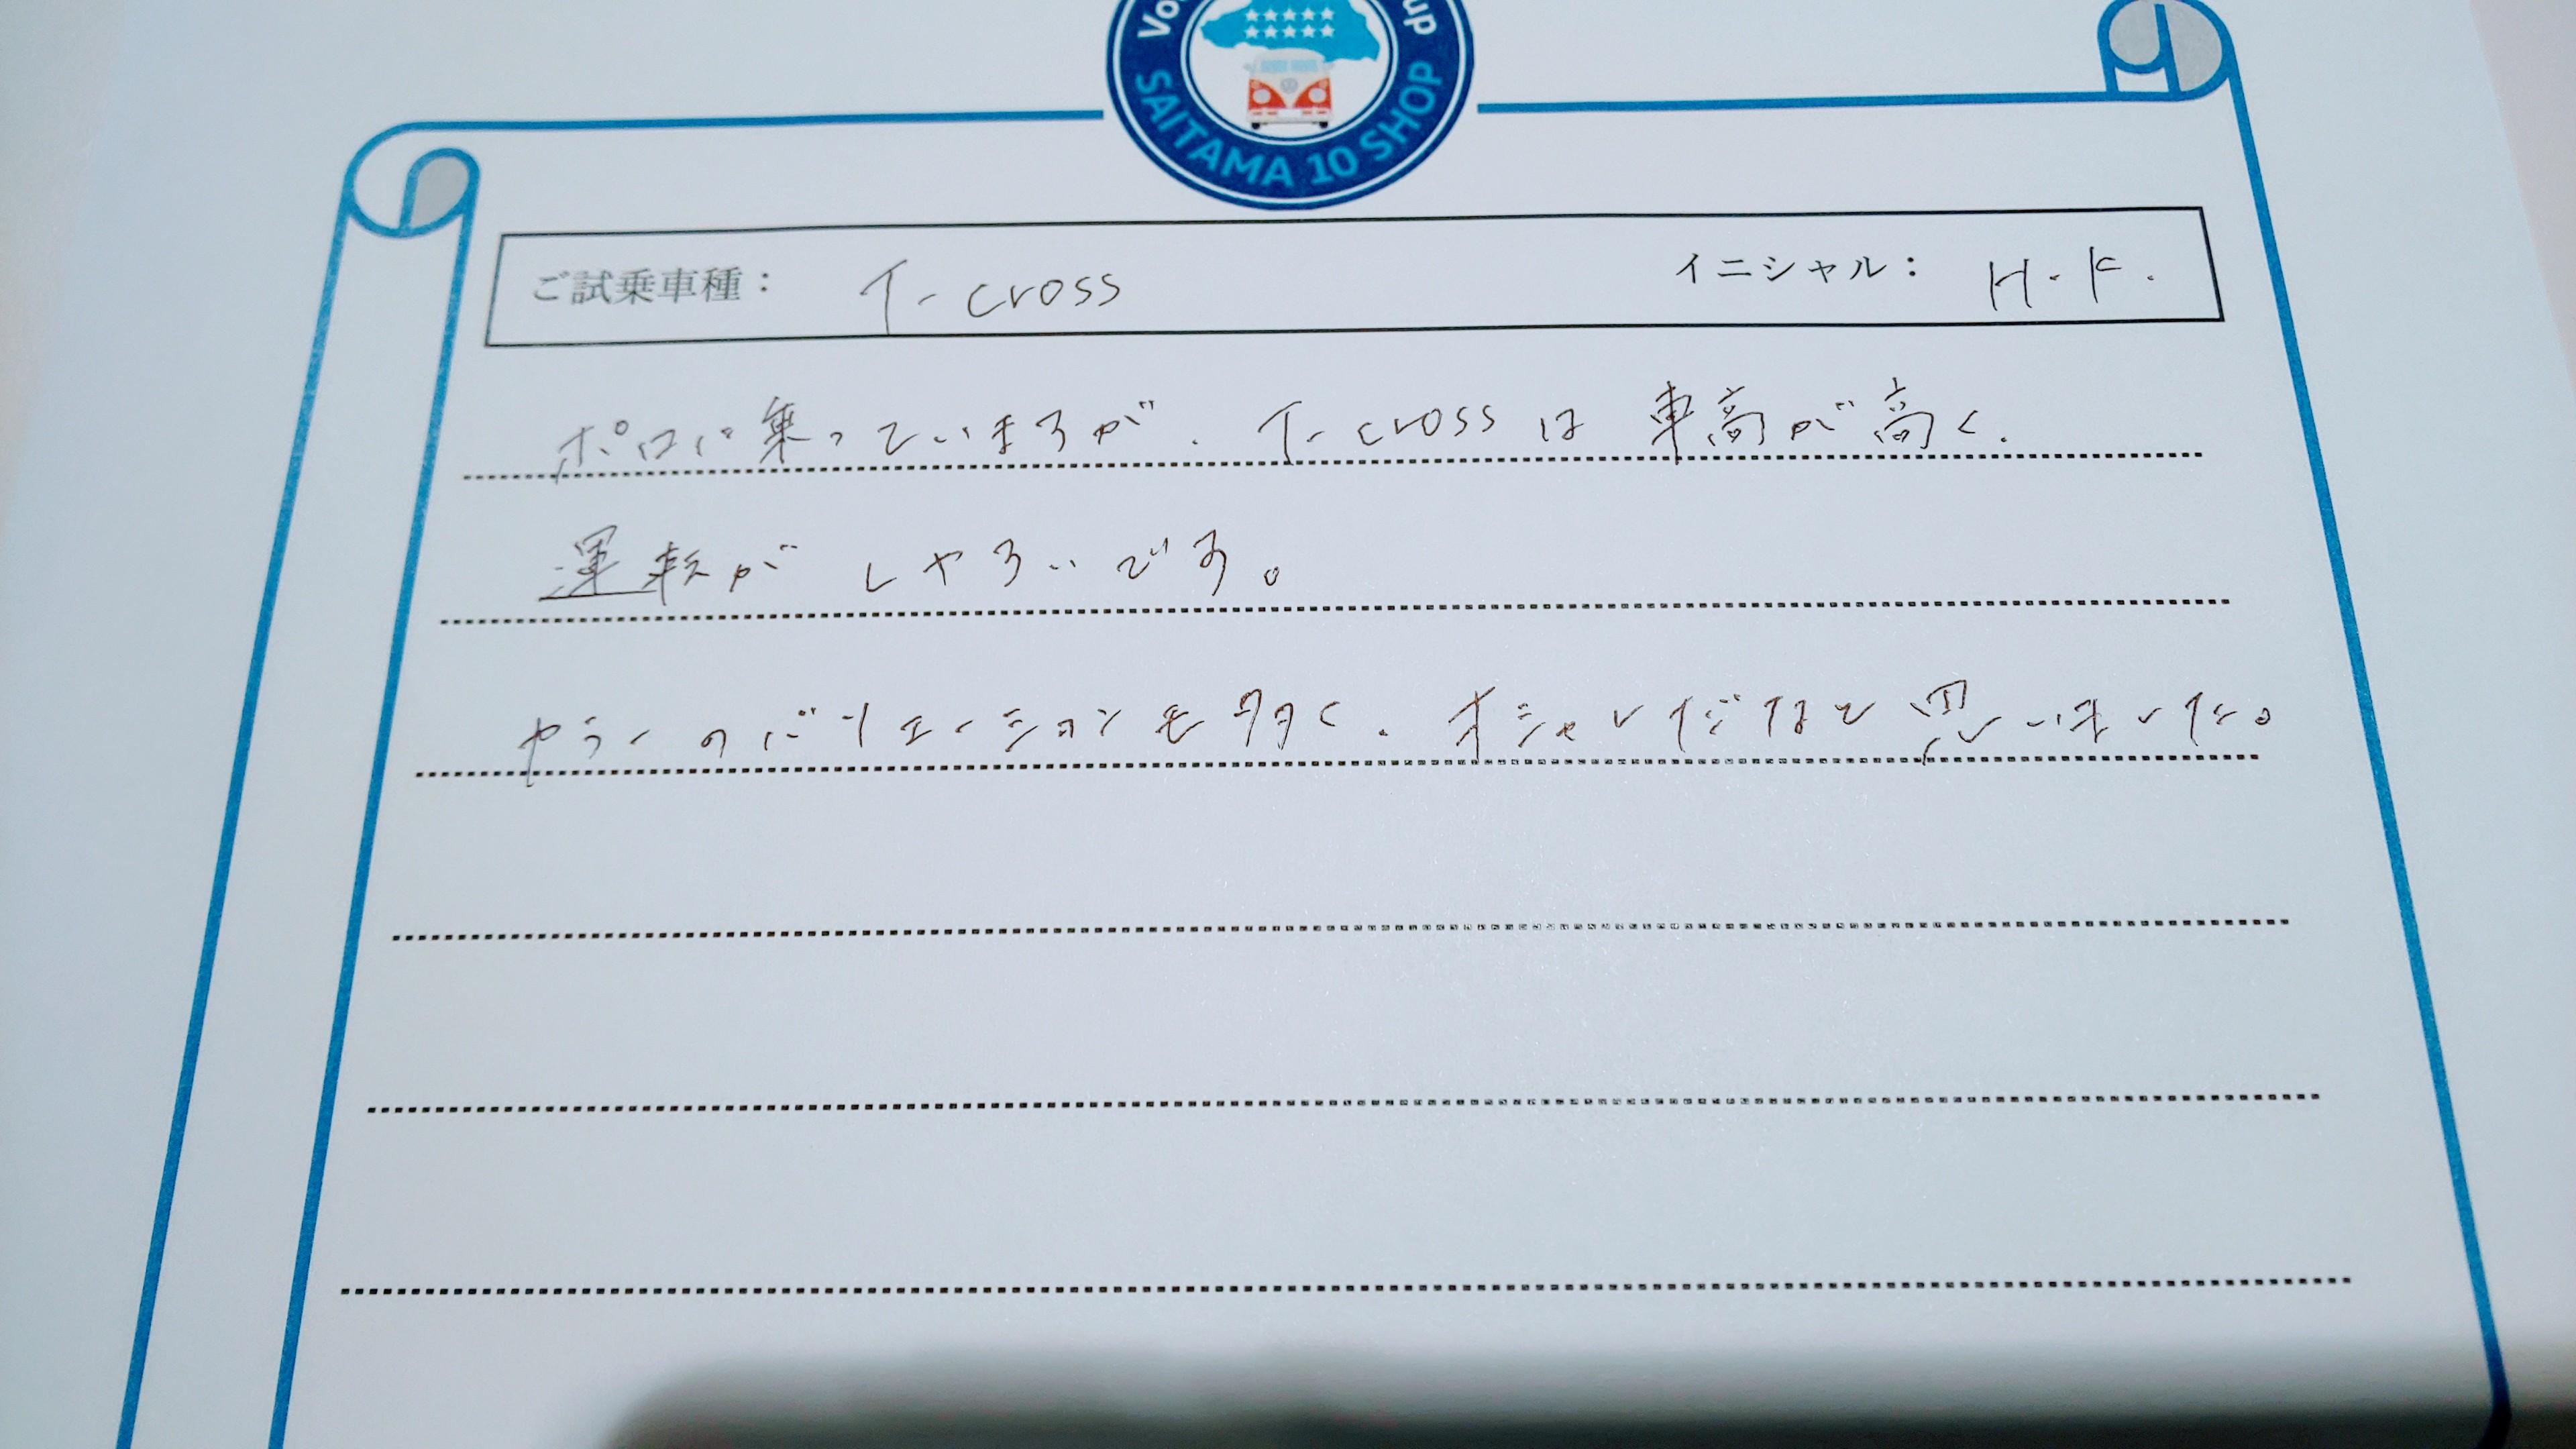 Vo up
SAITAMA 10 SHOP
ご試乗車種： T-cross イニシャル： H.K.
ポロに乗っていますが、T-crossは車高が高く、
運転がしやすいです。
カラーのバリエーションも多く、オシャレだなと思いました。